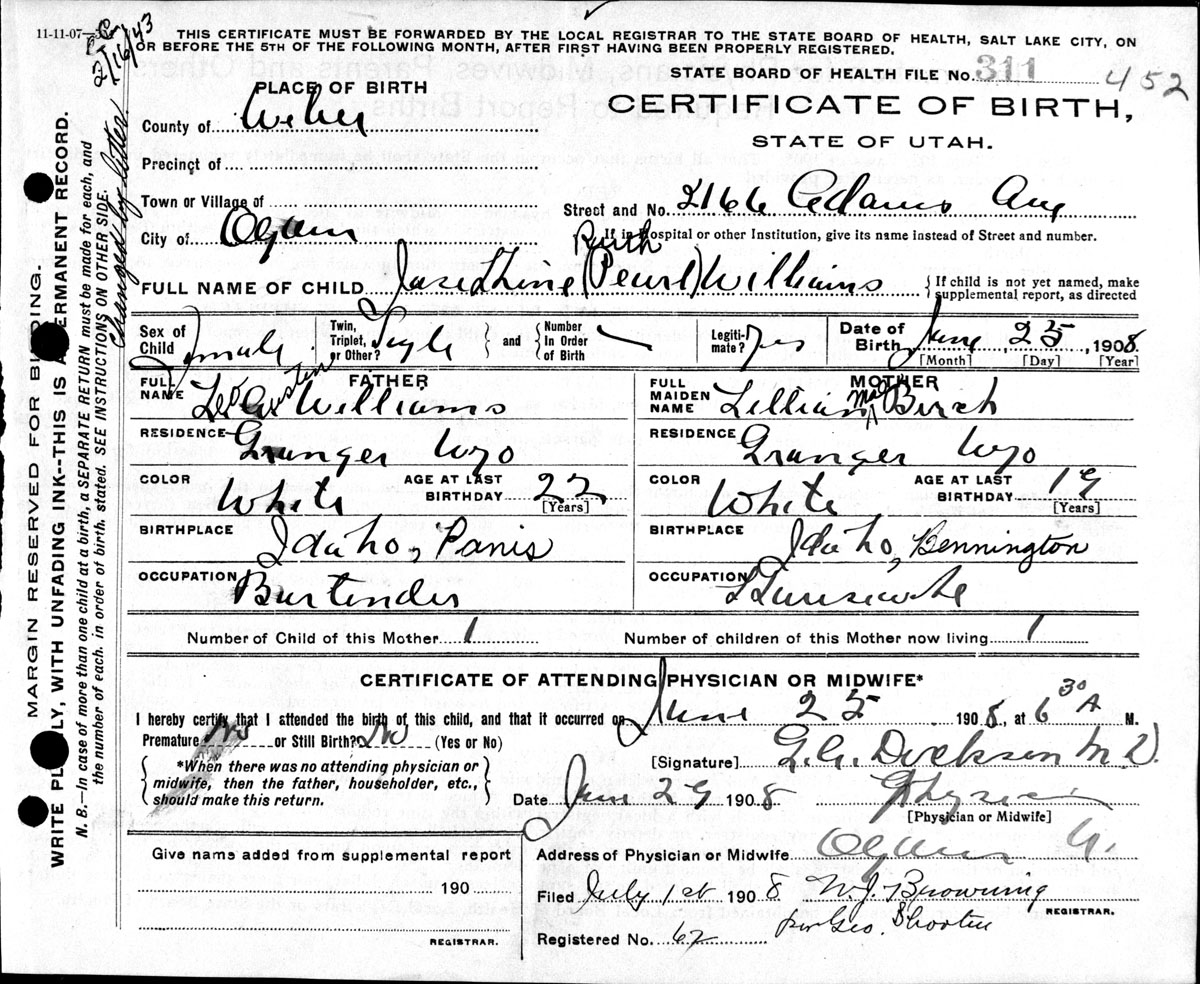 11-11-07
2/16/43
THIS CERTIFICATE MUST BE FORWARDED BY THE LOCAL REGISTRAR TO THE STATE BOARD OF HEALTH, SALT LAKE CITY, ON
OR BEFORE THE 5TH OF THE FOLLOWING MONTH, AFTER FIRST HAVING BEEN PROPERLY REGISTERED.
STATE BOARD OF HEALTH FILE No. 311 452
PLACE OF BIRTH
CERTIFICATE OF BIRTH,
STATE OF UTAH.
County of Weber
Precinct of
Town or Village of
Street and No. 2166 Adams Ave
City of Ogden
If in Hospital or other Institution, give its name instead of Street and number.
Birth
FULL NAME OF CHILD Josephine (Pearl) Williams { If child is not yet named, make
supplemental report, as directed
Sex of Child Female Twin, Triplet, or Other? Single and Number In Order of Birth Legitimate? Yes Date of Birth June 25, 1908.
[Month] [Day] [Year]
FATHER MOTHER
FULL NAME Leo Austen Williams FULL MAIDEN NAME Lillian May Birch
RESIDENCE Granger Wyo RESIDENCE Granger Wyo
COLOR White AGE AT LAST BIRTHDAY 22 [Years] COLOR White AGE AT LAST BIRTHDAY 19 [Years]
BIRTHPLACE Idaho, Paris BIRTHPLACE Idaho, Bennington
OCCUPATION Bartender OCCUPATION Housewife
Number of Child of this Mother 1 Number of children of this Mother now living 1
CERTIFICATE OF ATTENDING PHYSICIAN OR MIDWIFE*
I hereby certify that I attended the birth of this child, and that it occurred on June 25 1908, at 6 30 A M.
Premature No or Still Birth? No (Yes or No)
[Signature] G.A. Dickson M.D.
*When there was no attending physician or
midwife, then the father, householder, etc.,
should make this return.
Date June 29 1908 Physician
[Physician or Midwife]
Give name added from supplemental report
Address of Physician or Midwife Ogden U.
190
Filed July 1st 1908 W.J. Browning
REGISTRAR.
per Geo. Shorten
REGISTRAR.
Registered No. 62
MARGIN RESERVED FOR BINDING.
WRITE PLAINLY, WITH UNFADING INK--THIS IS A PERMANENT RECORD.
N. B.—In case of more than one child at a birth, a SEPARATE RETURN must be made for each, and
the number of each, in order of birth, stated. SEE INSTRUCTIONS ON OTHER SIDE.
Changed by letter